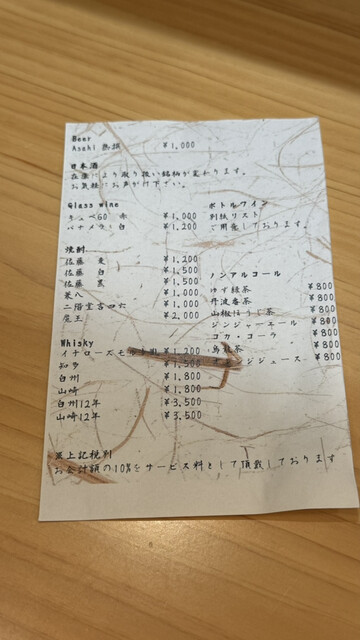 Beer
Asahi 熟撰 ¥1,000
日本酒
在庫により取り扱い銘柄が変わります。
お気軽にお声がけ下さい。
Glass wine
キュベ60 赤 ¥1,000
パナメラ 白 ¥1,200
焼酎
佐藤 麦 ¥1,200
佐藤 白 ¥1,500
佐藤 黒 ¥1,500
兼八 ¥1,000
二階堂吉四六 ¥1,000
魔王 ¥2,000
Whisky
イチローズモ ¥1,200
知多 ¥1,500
白州 ¥1,800
山崎 ¥1,800
白州12年 ¥3,500
山崎12年 ¥3,500
ボトルワイン
別紙リスト
ご用意しております。
ノンアルコール
ゆず緑茶 ¥800
丹波番茶 ¥800
山椒ほうじ茶 ¥800
ジンジャーエール ¥800
コカ・コーラ ¥800
烏龍茶 ¥800
ジジュース ¥800
※上記税別
お会計額の10%をサービス料として頂戴しております